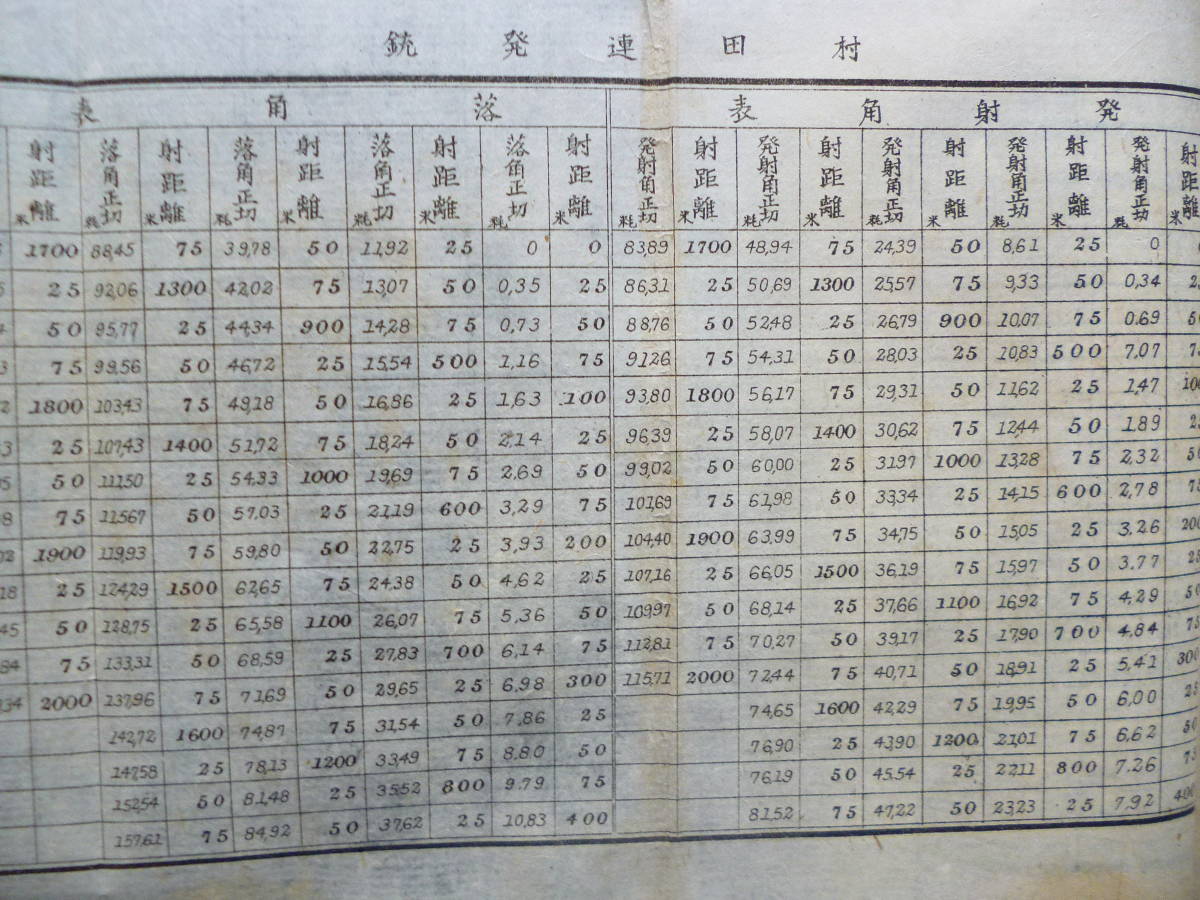 村田連発銃
発射角表 落角表
射距離米 発射角正切粍 射距離米 発射角正切粍 射距離米 発射角正切粍 射距離米 発射角正切粍 射距離米 発射角正切粍 射距離米 落角正切粍 射距離米 落角正切粍 射距離米 落角正切粍 射距離米 落角正切粍 射距離米
0 25 8,61 50 24,39 75 48,94 1700 83,89 0 0 25 11,92 50 39,78 75 88,45 1700
0,34 50 9,33 75 25,57 1300 50,69 25 86,31 25 0,35 50 13,07 75 42,02 1300 92,06 25
0,69 75 10,07 900 26,79 25 52,48 50 88,76 50 0,73 75 14,28 900 44,34 25 95,77 50
7,07 500 10,83 25 28,03 50 54,31 75 91,26 75 1,16 500 15,54 25 46,72 50 99,56 75
1,47 25 11,62 50 29,31 75 56,17 1800 93,80 100 1,63 25 16,86 50 49,18 75 103,43 1800
1,89 50 12,44 75 30,62 1400 58,07 25 96,39 25 2,14 50 18,24 75 51,72 1400 107,43 25
2,32 75 13,28 1000 31,97 25 60,00 50 99,02 50 2,69 75 19,69 1000 54,33 25 111,50 50
2,78 600 14,15 25 33,34 50 61,98 75 101,69 75 3,29 600 21,19 25 57,03 50 115,67 75
200 3,26 25 15,05 50 34,75 75 63,99 1900 104,40 200 3,93 25 22,75 50 59,80 75 119,93 1900
3,77 50 15,97 75 36,19 1500 66,05 25 107,16 25 4,62 50 24,38 75 62,65 1500 124,29 25
4,29 75 16,92 1100 37,66 25 68,14 50 109,97 50 5,36 75 26,07 1100 65,58 25 128,75 50
4,84 700 17,90 25 39,17 50 70,27 75 112,81 75 6,14 700 27,83 25 68,59 50 133,31 75
300 5,41 25 18,91 50 40,71 75 72,44 2000 115,71 300 6,98 25 29,65 50 71,69 75 137,96 2000
6,00 50 19,95 75 42,29 1600 74,65 25 7,86 50 31,54 75 74,87 1600 142,72
6,62 75 21,01 1200 43,90 25 76,90 50 8,80 75 33,49 1200 78,13 25 147,58
7,26 800 22,11 25 45,54 50 76,19 75 9,79 800 35,52 25 81,48 50 152,54
7,92 25 23,23 50 47,22 75 81,52 400 10,83 25 37,62 50 84,92 75 157,61